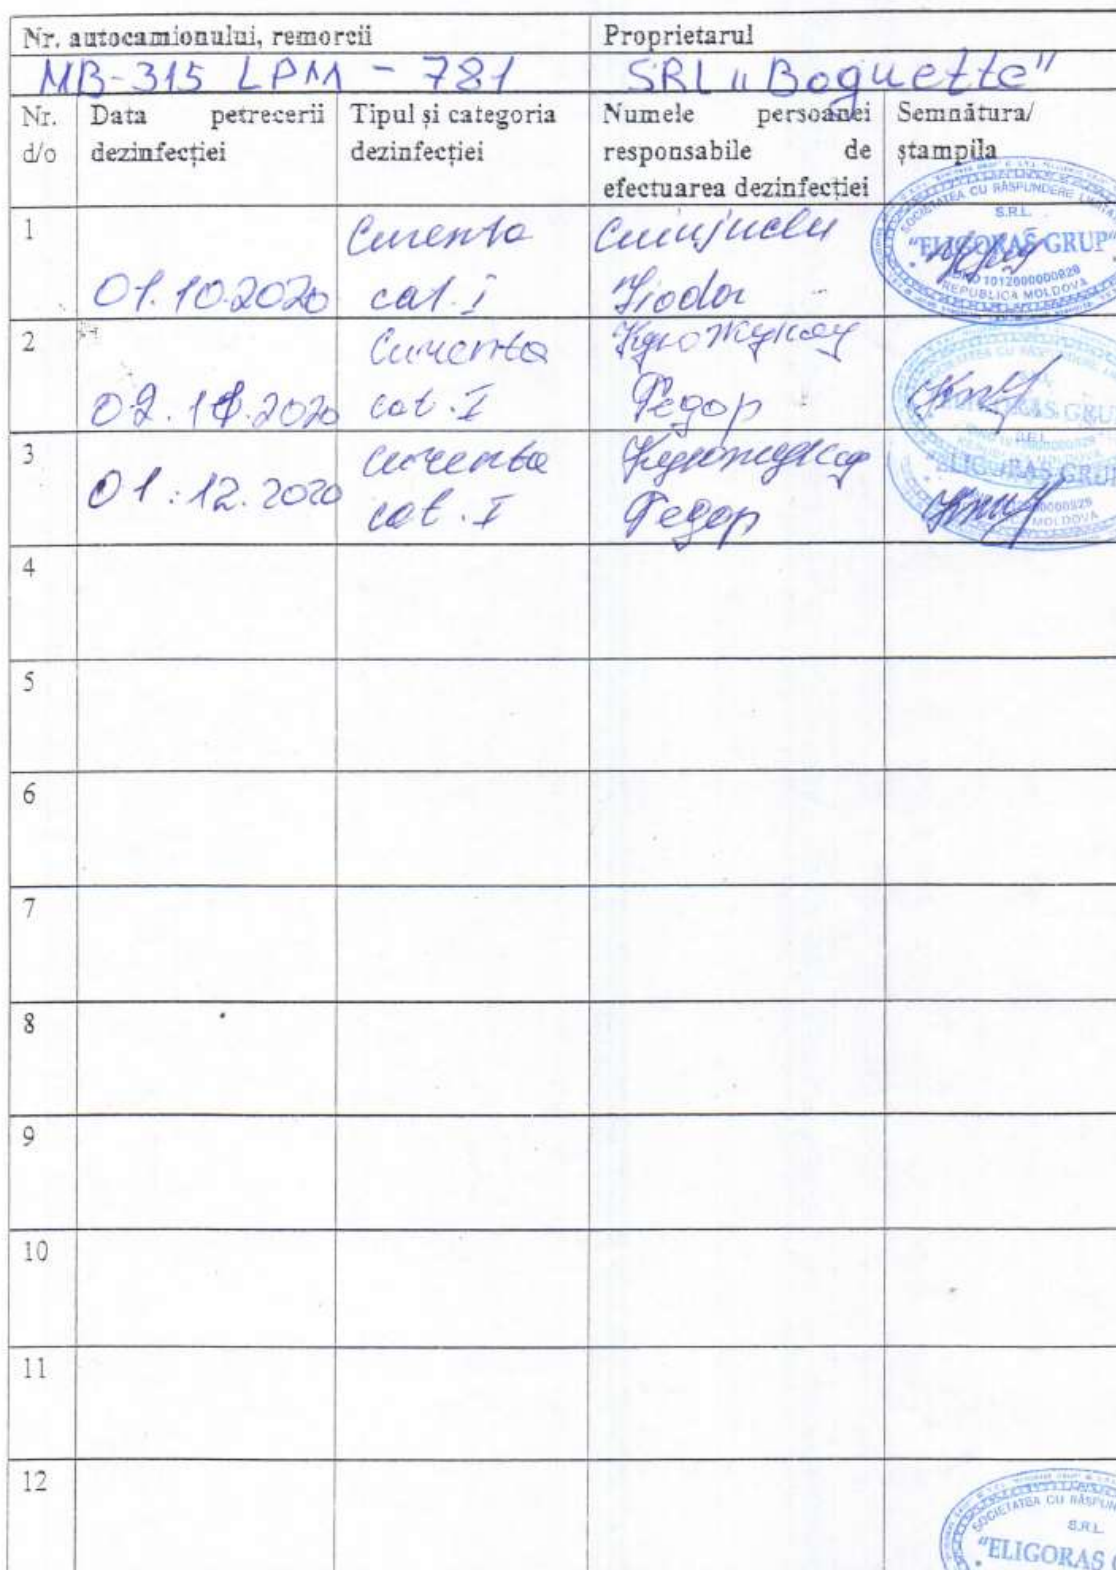 Nr. autocamionului, remorcii Proprietarul
MB-315 LPM - 781 SRL "Boguette"
Nr. d/o
Data petrecerii dezinfecției
Tipul și categoria dezinfecției
Numele persoanei responsabile de efectuarea dezinfecției
Semnătura/ ștampila
1
01.10.2020
Curenta
cat. I
Fiodor
SOCIETATEA CU RĂSPUNDERE
S.R.L.
"ELIGORAS GRUP"
1012600000829
REPUBLICA MOLDOVA
2
02.11.2020
Curenta
cat. I
Федор
3
01.12.2020
curenta
cat. I
Федор
S.R.L.
"ELIGORAS GRUP
MOLDOVA
4
5
6
7
8
9
10
11
12
SOCIETATEA CU RĂSPUN
S.R.L.
"ELIGORAS